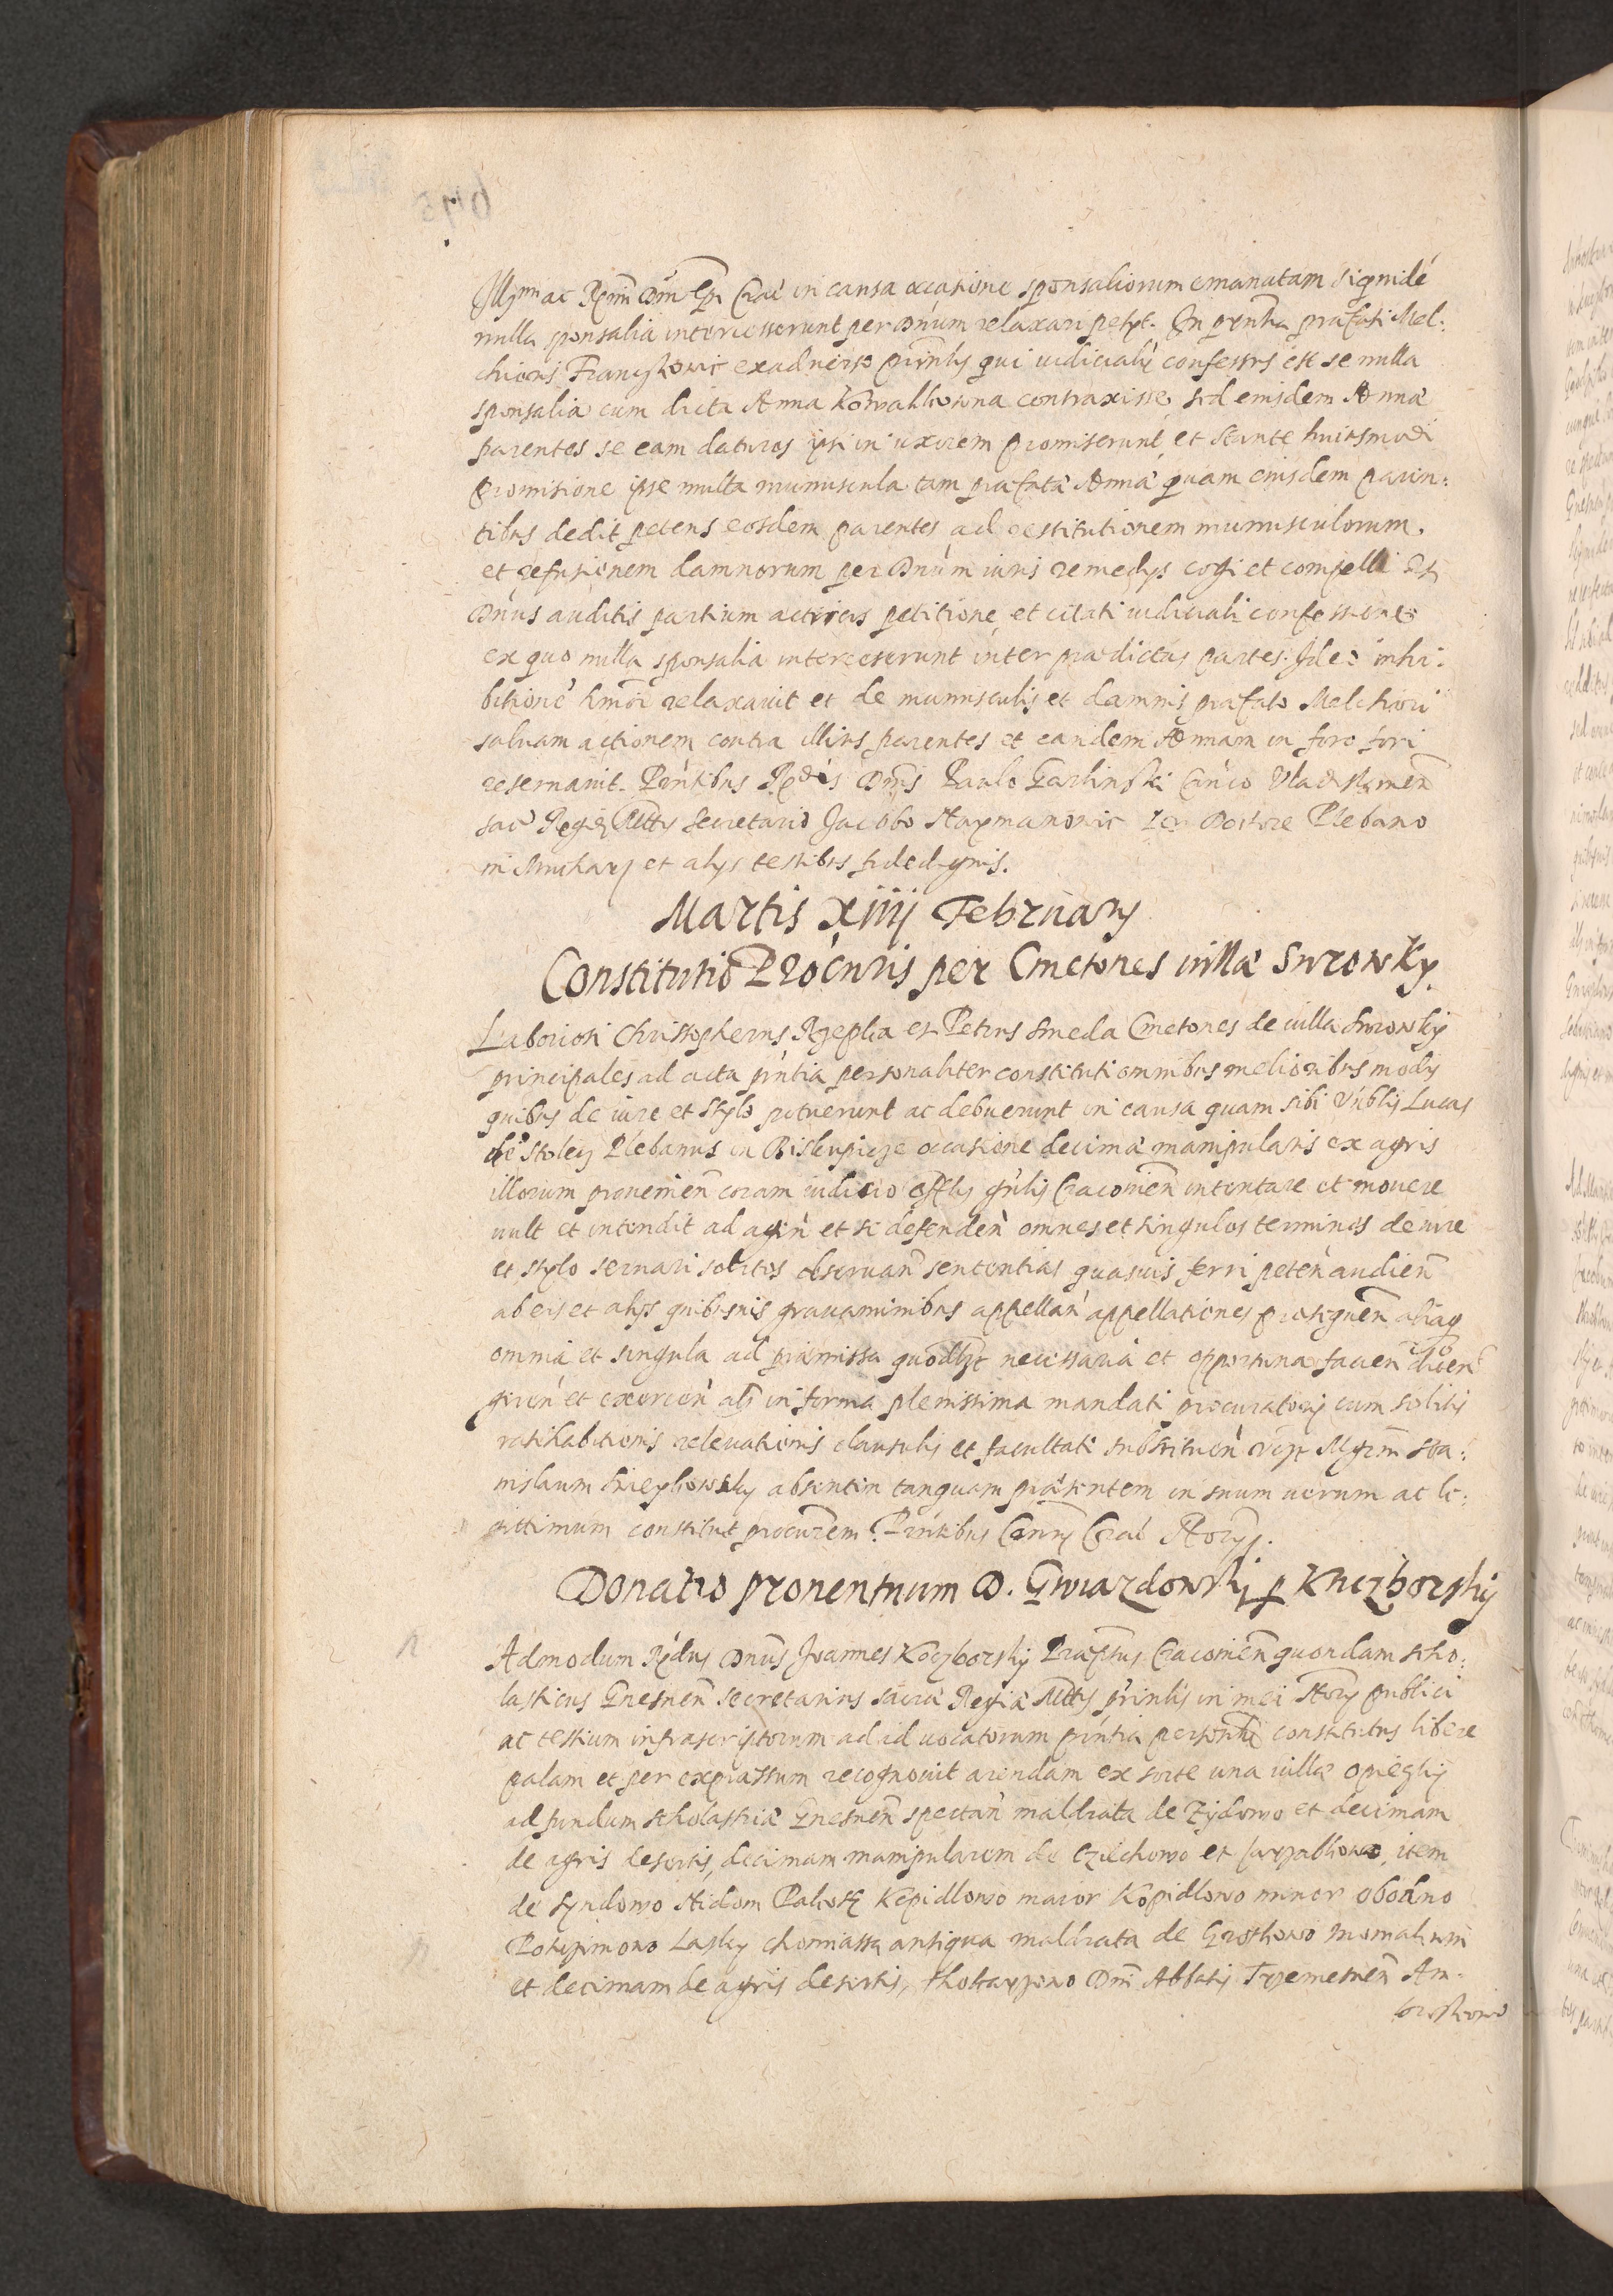 Illmm ac Rmm Dnm Epm Crac in causa occasione sponsaliorum emanatam siquidē
nulla sponsalia intercesserunt per Dnum relaxari petyt. In pntia præfati Mel:
chioris exaduerso pntis qui iudicialr confessus est se nulla
sponsalia cum dicta Anna Kowalkowna contraxisse, sed eiusdem Annæ
parentes se eam daturos ipsi in uxorem promiserunt, et stante huiusmodi
promisione ipse multa munuscula tam præfatæ Annæ quam eiusdem paren:
tibus dedit petens eosdem parentes ad restitutionem munusculorum
et refusionem damnorum per Dnum iuris remedys cogi et compelli Et
Dnus auditis partium actricis petitione et citati iudiciali confessione
ex quo nulla sponsalia intercesserunt inter prædictas partes. Ideo inhi:
bitionē hmoi relaxauit et de munusculis et damnis præfato Melchiori
saluam actionem contra illius parentes et eandem Annam in foro fori
reseruauit. Pntibus Rndis Dnis Paulo Garlinski Cnco Vladislauien
sac Regiæ Mttis Secretario Jacobo Haxmanowic Doctore Plebano
in Mucharz et alys testibus fidedignis.
Martis xiiij February
Constitutio Procuris per Cmetones uillæ Surowky.
Laboriosi Christopherus Rzepka et Petrus Smeda Cmetones de uilla Surowky
principales ad acta pntia personaliter constituti omnibus melioribus modis
quibus de iure et stylo potuerunt ac debuerunt in causa quam sibi Vnblis Lucas
de Stoley Plebanus in Biskupicze occasione decimæ manipularis ex agris
illorum prouenien coram iudicio Offlis gnlis Cracouien intentare et mouere
uult et intendit ad agen et se defenden omnes et singulos terminos de iure
et stylo seruari solitos obseruan sententias quasuis ferri peten audien
ab eis et alys quibusuis grauaminibus appellan appellationes prosequen aliaq
omnia et singula ad præmissa quodlzt necessaria et opportuna facien dicen
geren et exercen als in forma plenissima mandati procuratorij cum solitis
ratihabitionis releuationis clausulis et facultate substituen Mgrm Sta:
nislaum absentem tanquam præsentem in suum uerum ac le:
gittimum constituit procurem. Pntibus Crac Notarys.
Donatio prouentuum D. Gwiazdowskij p Koczborskij
Admodum Rndus Dnus Joannes Koczborskij Præptus Cracouien quondam scho:
lasticus Gnesnen secretarius sacræ Regiæ Mttis prinlis in mei Notry publici
ac testium infrascriptorum ad id uocatorum pntia personlr constitutus libere
palam et per expræssum recognouit arendam ex sorte una uillæ opieglij
ad fundum scholastriæ Gnesnen spectan maldrata de Zydowo et decimam
de agris desertis, decimam manipularem de Czelchowo et item
de Syndowo Kepidlowo maior Kopidlowo minor
Laszky antiqua maldrata de
et decimam de agris desertis, Dni Abbatis Trzemesnen Am: